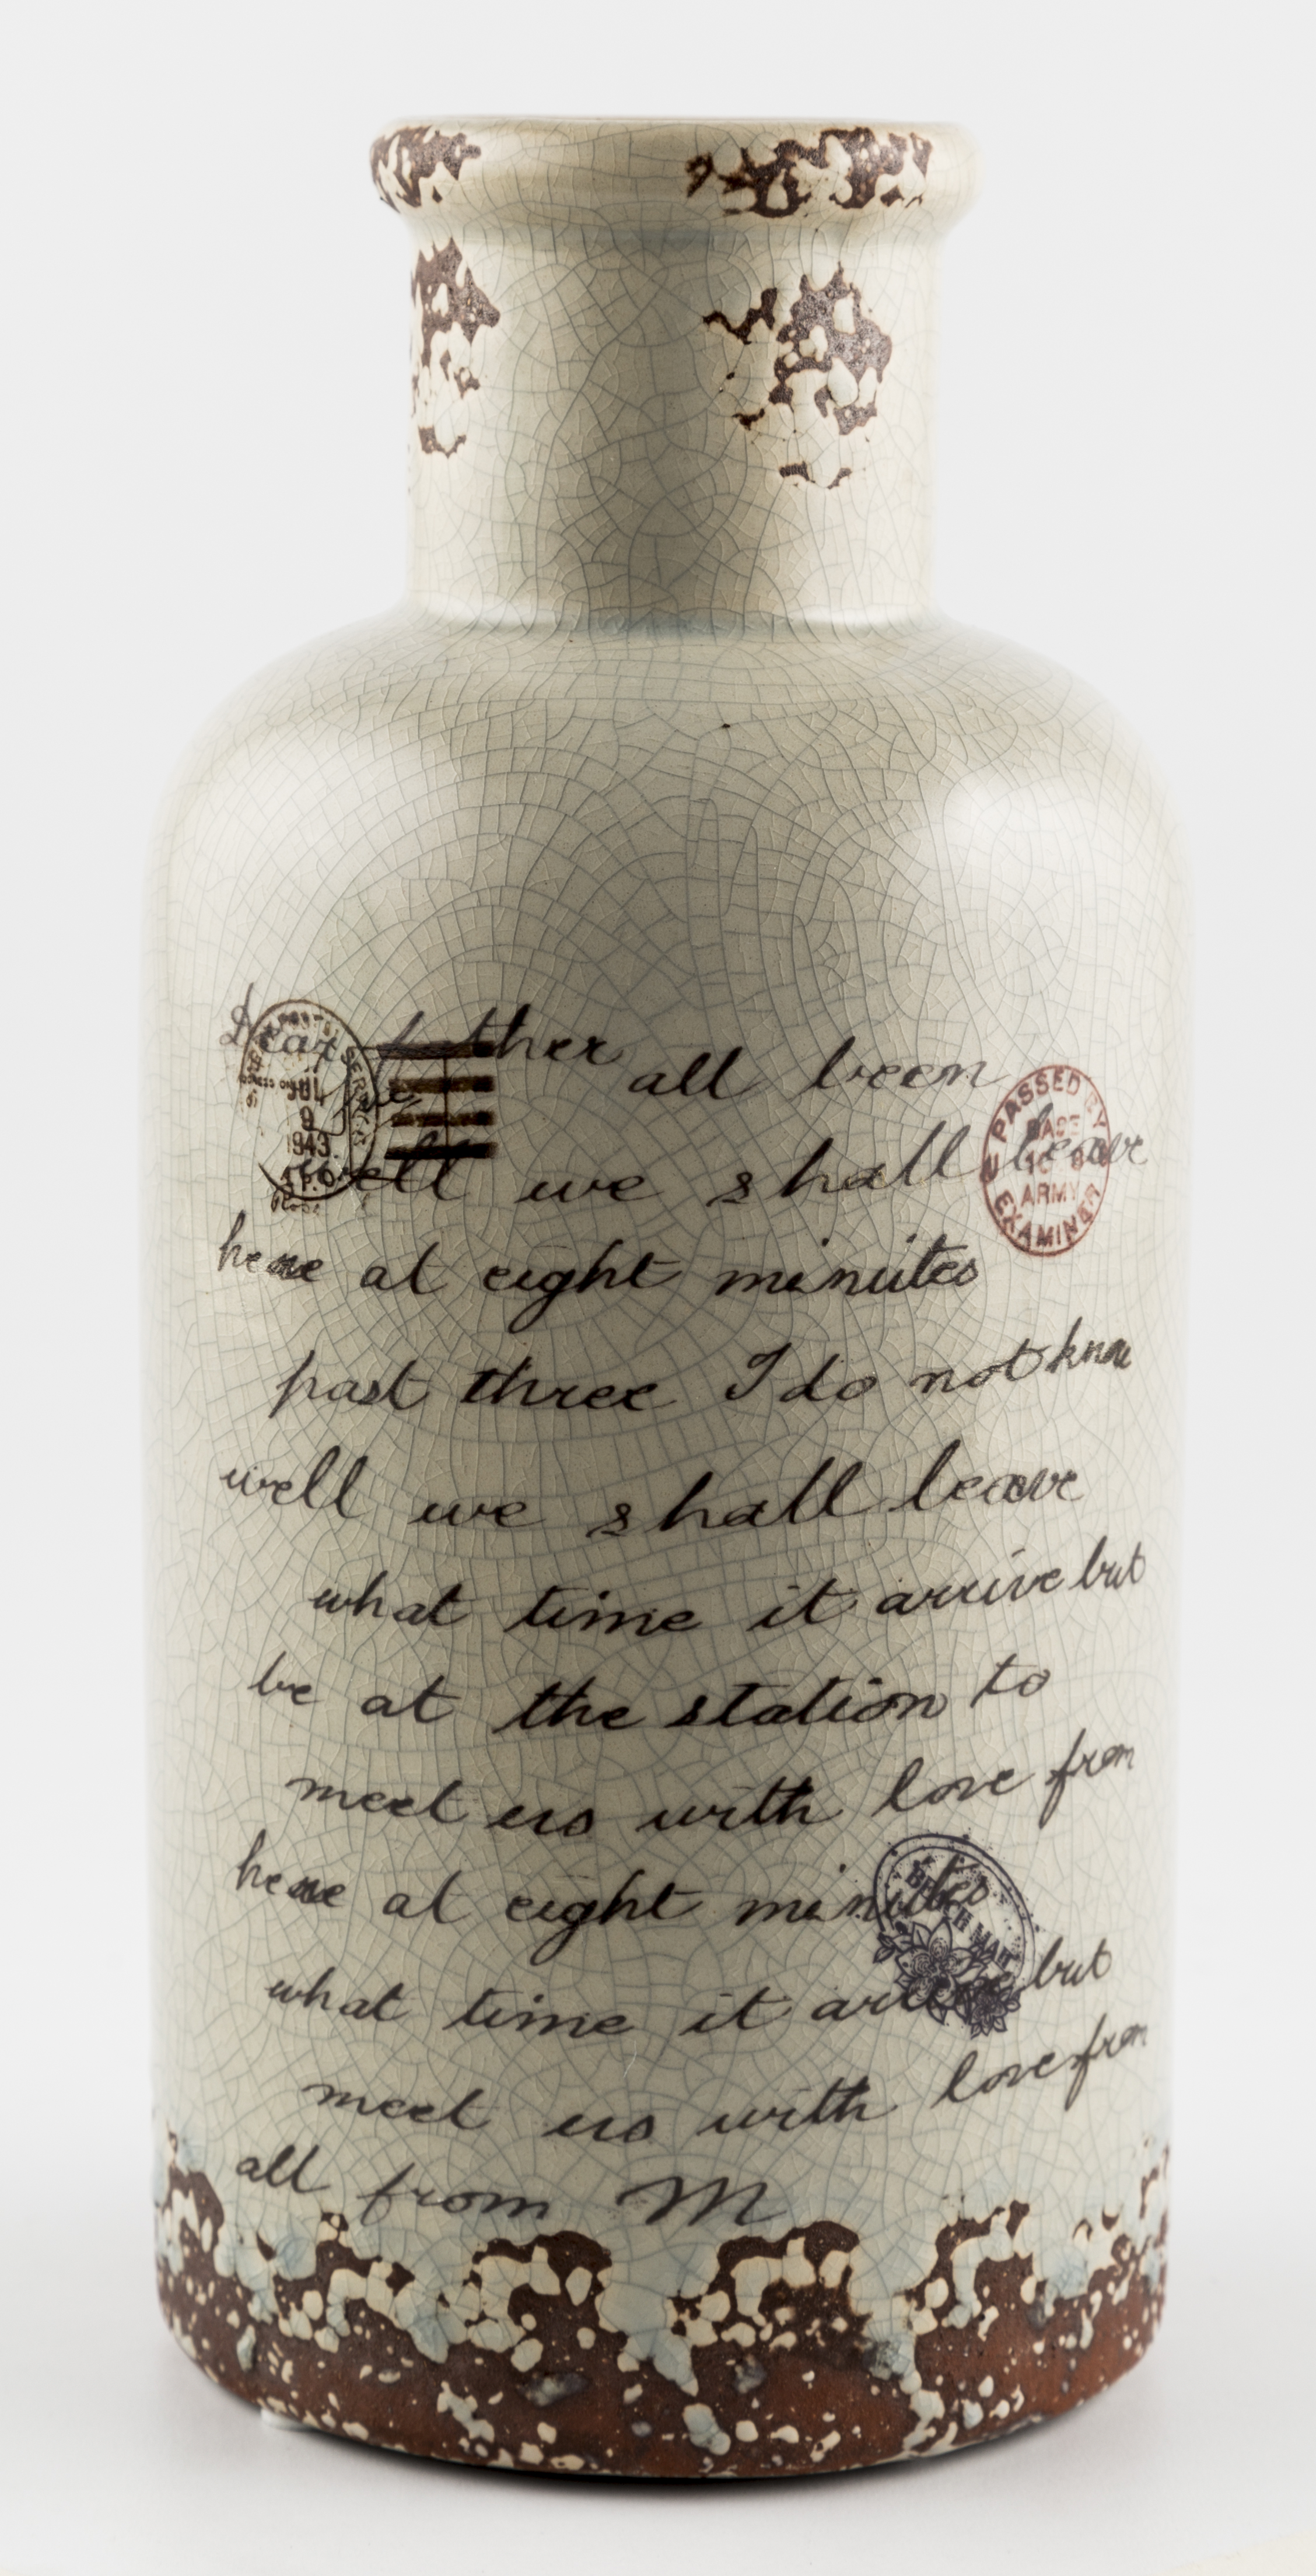 Dear
all been
well we shall leave
here at eight minutes
past three I do not know
well we shall leave
what time it arrive but
be at the station to
meet us with love from
here at eight minutes
what time it arrive but
meet us with love from
all from M
JUL
9
1943
A.P.O.
PASSED BY
BASE
ARMY
EXAMINER